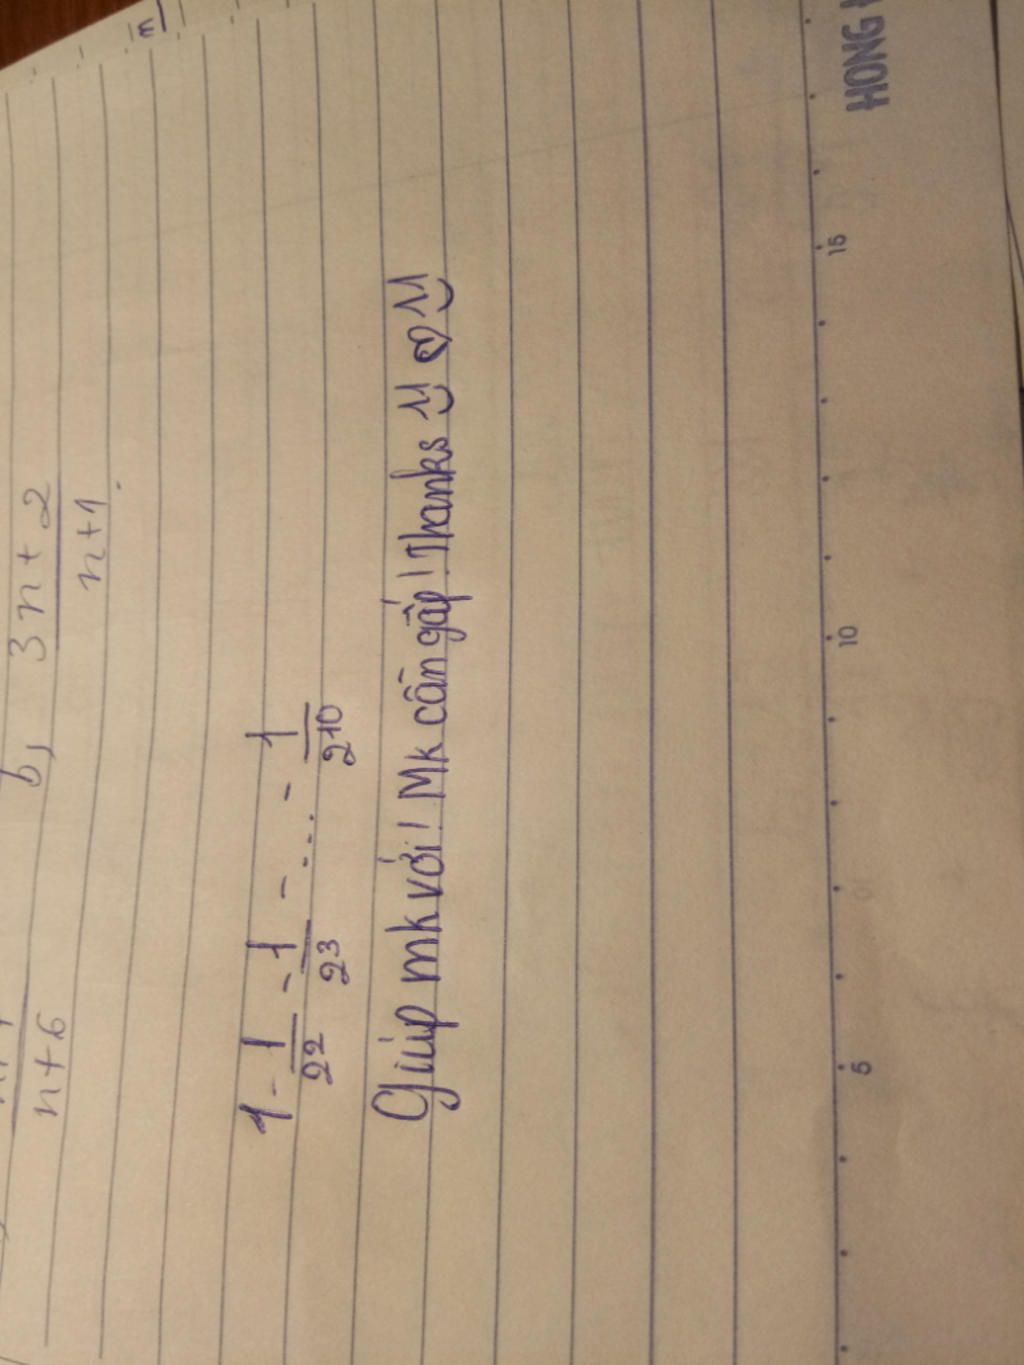 b, 3n+2
n+6 n+1
1 - 1/2² - 1/2³ - ... - 1/2¹⁰
Giúp mk với! Mk cần gấp! Thanks
5 10 15
HONG